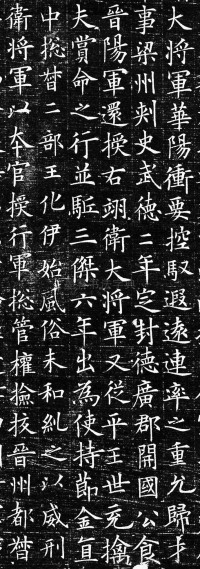 大将軍華陽衝要控馭遐遠連率之重允歸才
事梁州刾史武德二年定封德廣郡開國公食
晉陽軍還授右翊衛大将軍又從平王世充擒
夫賞命之行並駈三傑六年出為使持節金亘
中捴督二部王化伊始風俗未和糺之以威刑
衛将軍以本官授行軍捴管權撿挍晉州都督